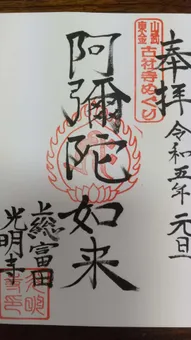 奉拝
令和五年 元旦
山武
東金
古社寺めぐり
阿彌陀如来
上総富田
光明寺